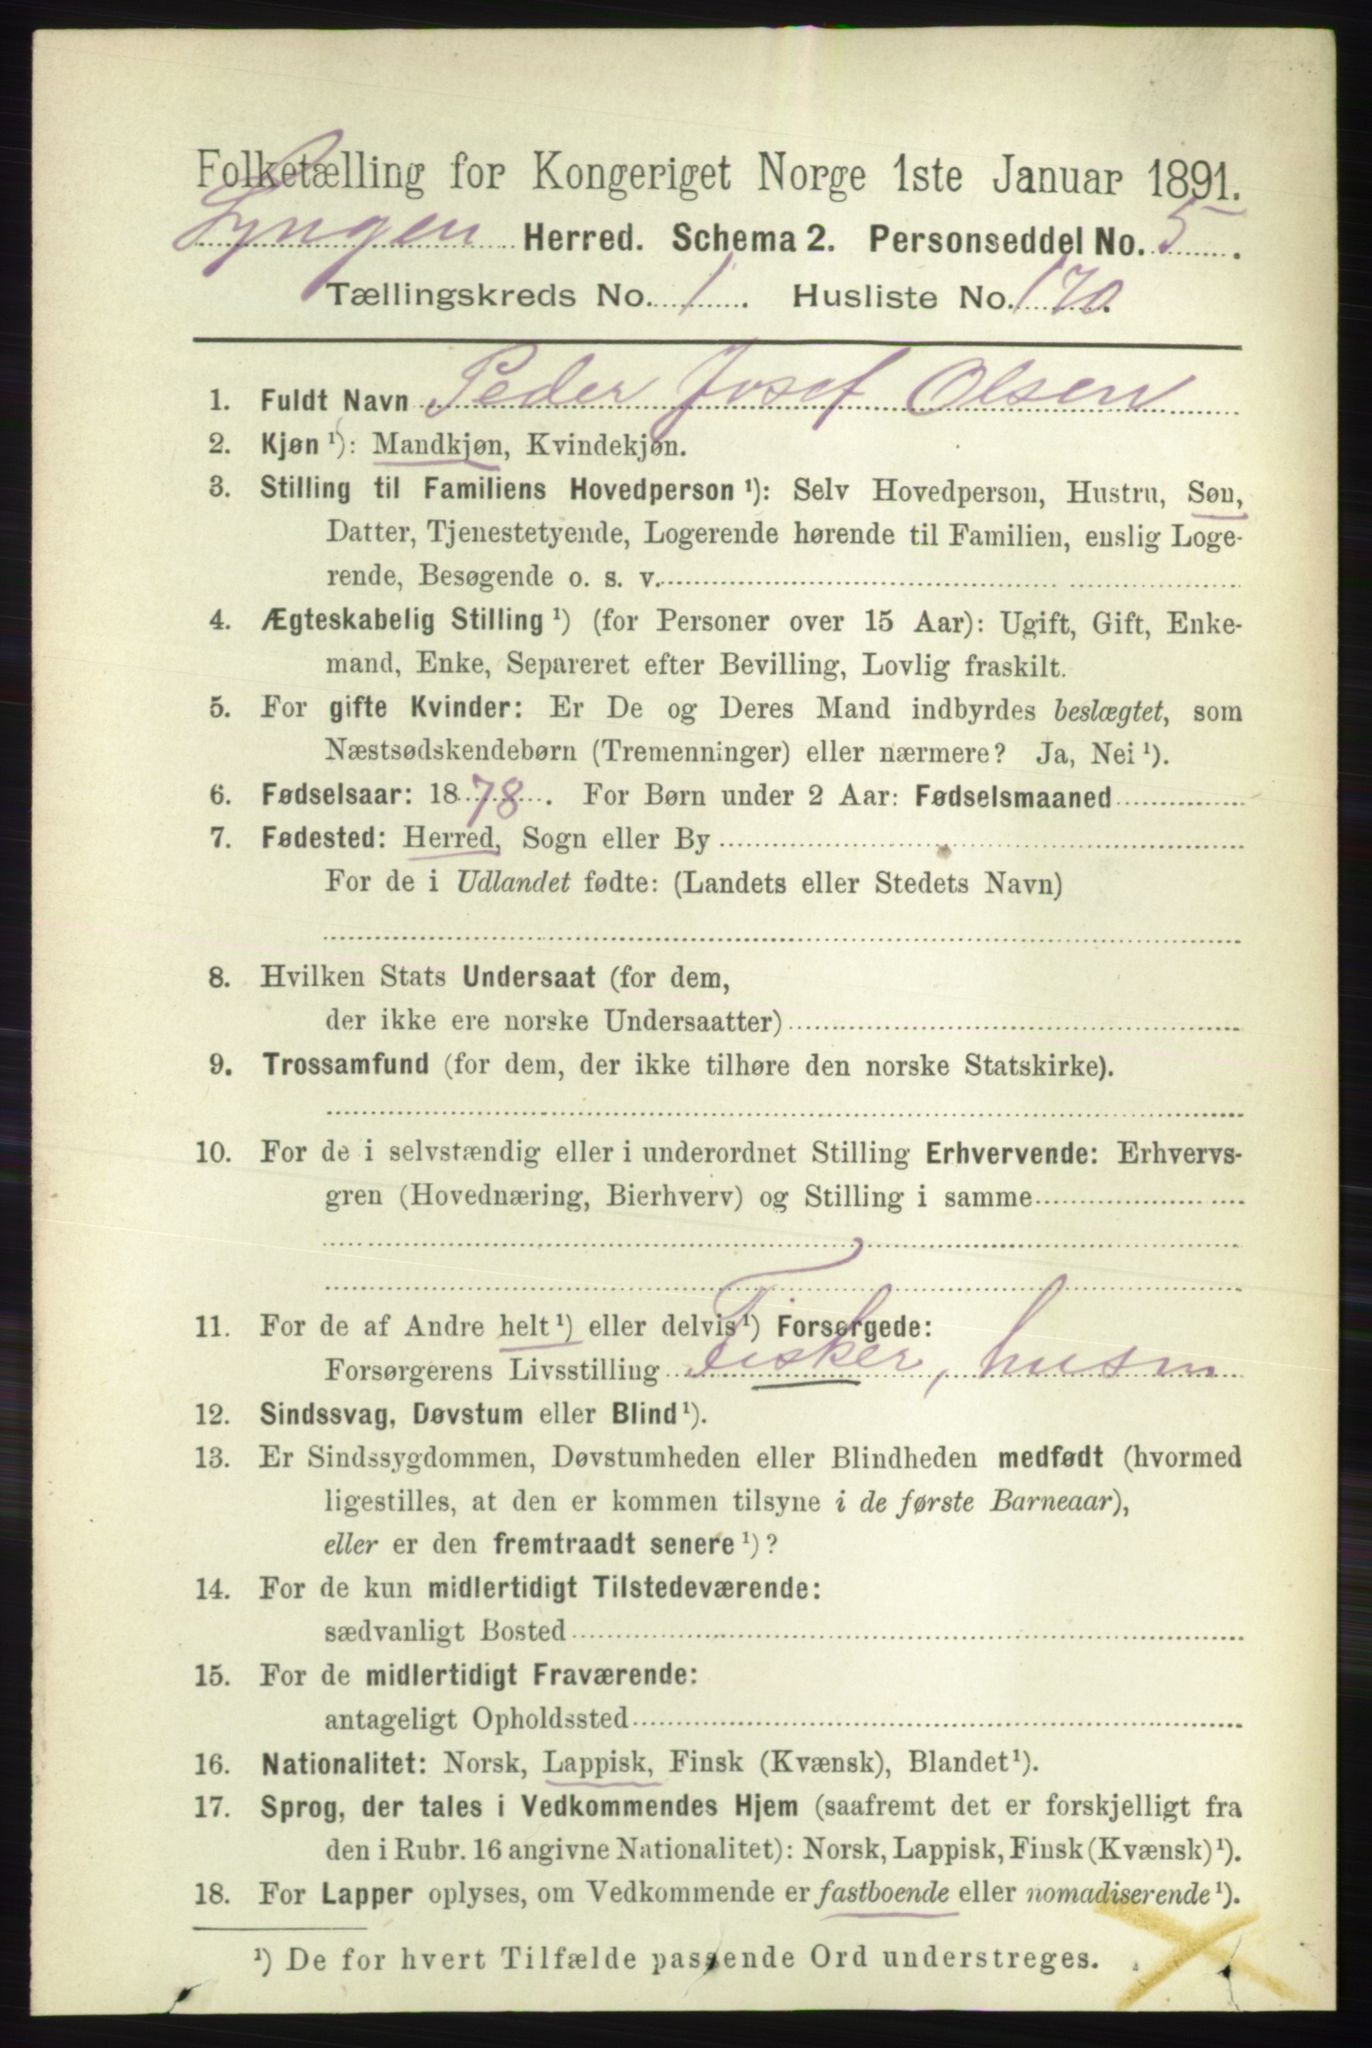 Folketælling for Kongeriget Norge 1ste Januar 1891.
Lyngen Herred. Schema 2. Personseddel No. 5.
Tællingskreds No. 1. Husliste No. 170.
1. Fuldt Navn Peder Josef Olsen
2. Kjøn ¹): Mandkjøn, Kvindekjøn.
3. Stilling til Familiens Hovedperson ¹): Selv Hovedperson, Hustru, Søn,
Datter, Tjenestetyende, Logerende hørende til Familien, enslig Loge-
rende, Besøgende o. s. v.
4. Ægteskabelig Stilling ¹) (for Personer over 15 Aar): Ugift, Gift, Enke-
mand, Enke, Separeret efter Bevilling, Lovlig fraskilt.
5. For gifte Kvinder: Er De og Deres Mand indbyrdes beslægtet, som
Næstsødskendebørn (Tremenninger) eller nærmere? Ja, Nei ¹).
6. Fødselsaar: 1878. For Børn under 2 Aar: Fødselsmaaned
7. Fødested: Herred, Sogn eller By
For de i Udlandet fødte: (Landets eller Stedets Navn)
8. Hvilken Stats Undersaat (for dem,
der ikke ere norske Undersaatter)
9. Trossamfund (for dem, der ikke tilhøre den norske Statskirke).
10. For de i selvstændig eller i underordnet Stilling Erhvervende: Erhvervs-
gren (Hovednæring, Bierhverv) og Stilling i samme
11. For de af Andre helt ¹) eller delvis ¹) Forsørgede:
Forsørgerens Livsstilling Fisker, husm
12. Sindssvag, Døvstum eller Blind ¹).
13. Er Sindssygdommen, Døvstumheden eller Blindheden medfødt (hvormed
ligestilles, at den er kommen tilsyne i de første Barneaar),
eller er den fremtraadt senere ¹)?
14. For de kun midlertidigt Tilstedeværende:
sædvanligt Bosted
15. For de midlertidigt Fraværende:
antageligt Opholdssted
16. Nationalitet: Norsk, Lappisk, Finsk (Kvænsk), Blandet ¹).
17. Sprog, der tales i Vedkommendes Hjem (saafremt det er forskjelligt fra
den i Rubr. 16 angivne Nationalitet): Norsk, Lappisk, Finsk (Kvænsk) ¹).
18. For Lapper oplyses, om Vedkommende er fastboende eller nomadiserende ¹).
¹) De for hvert Tilfælde passende Ord understreges.